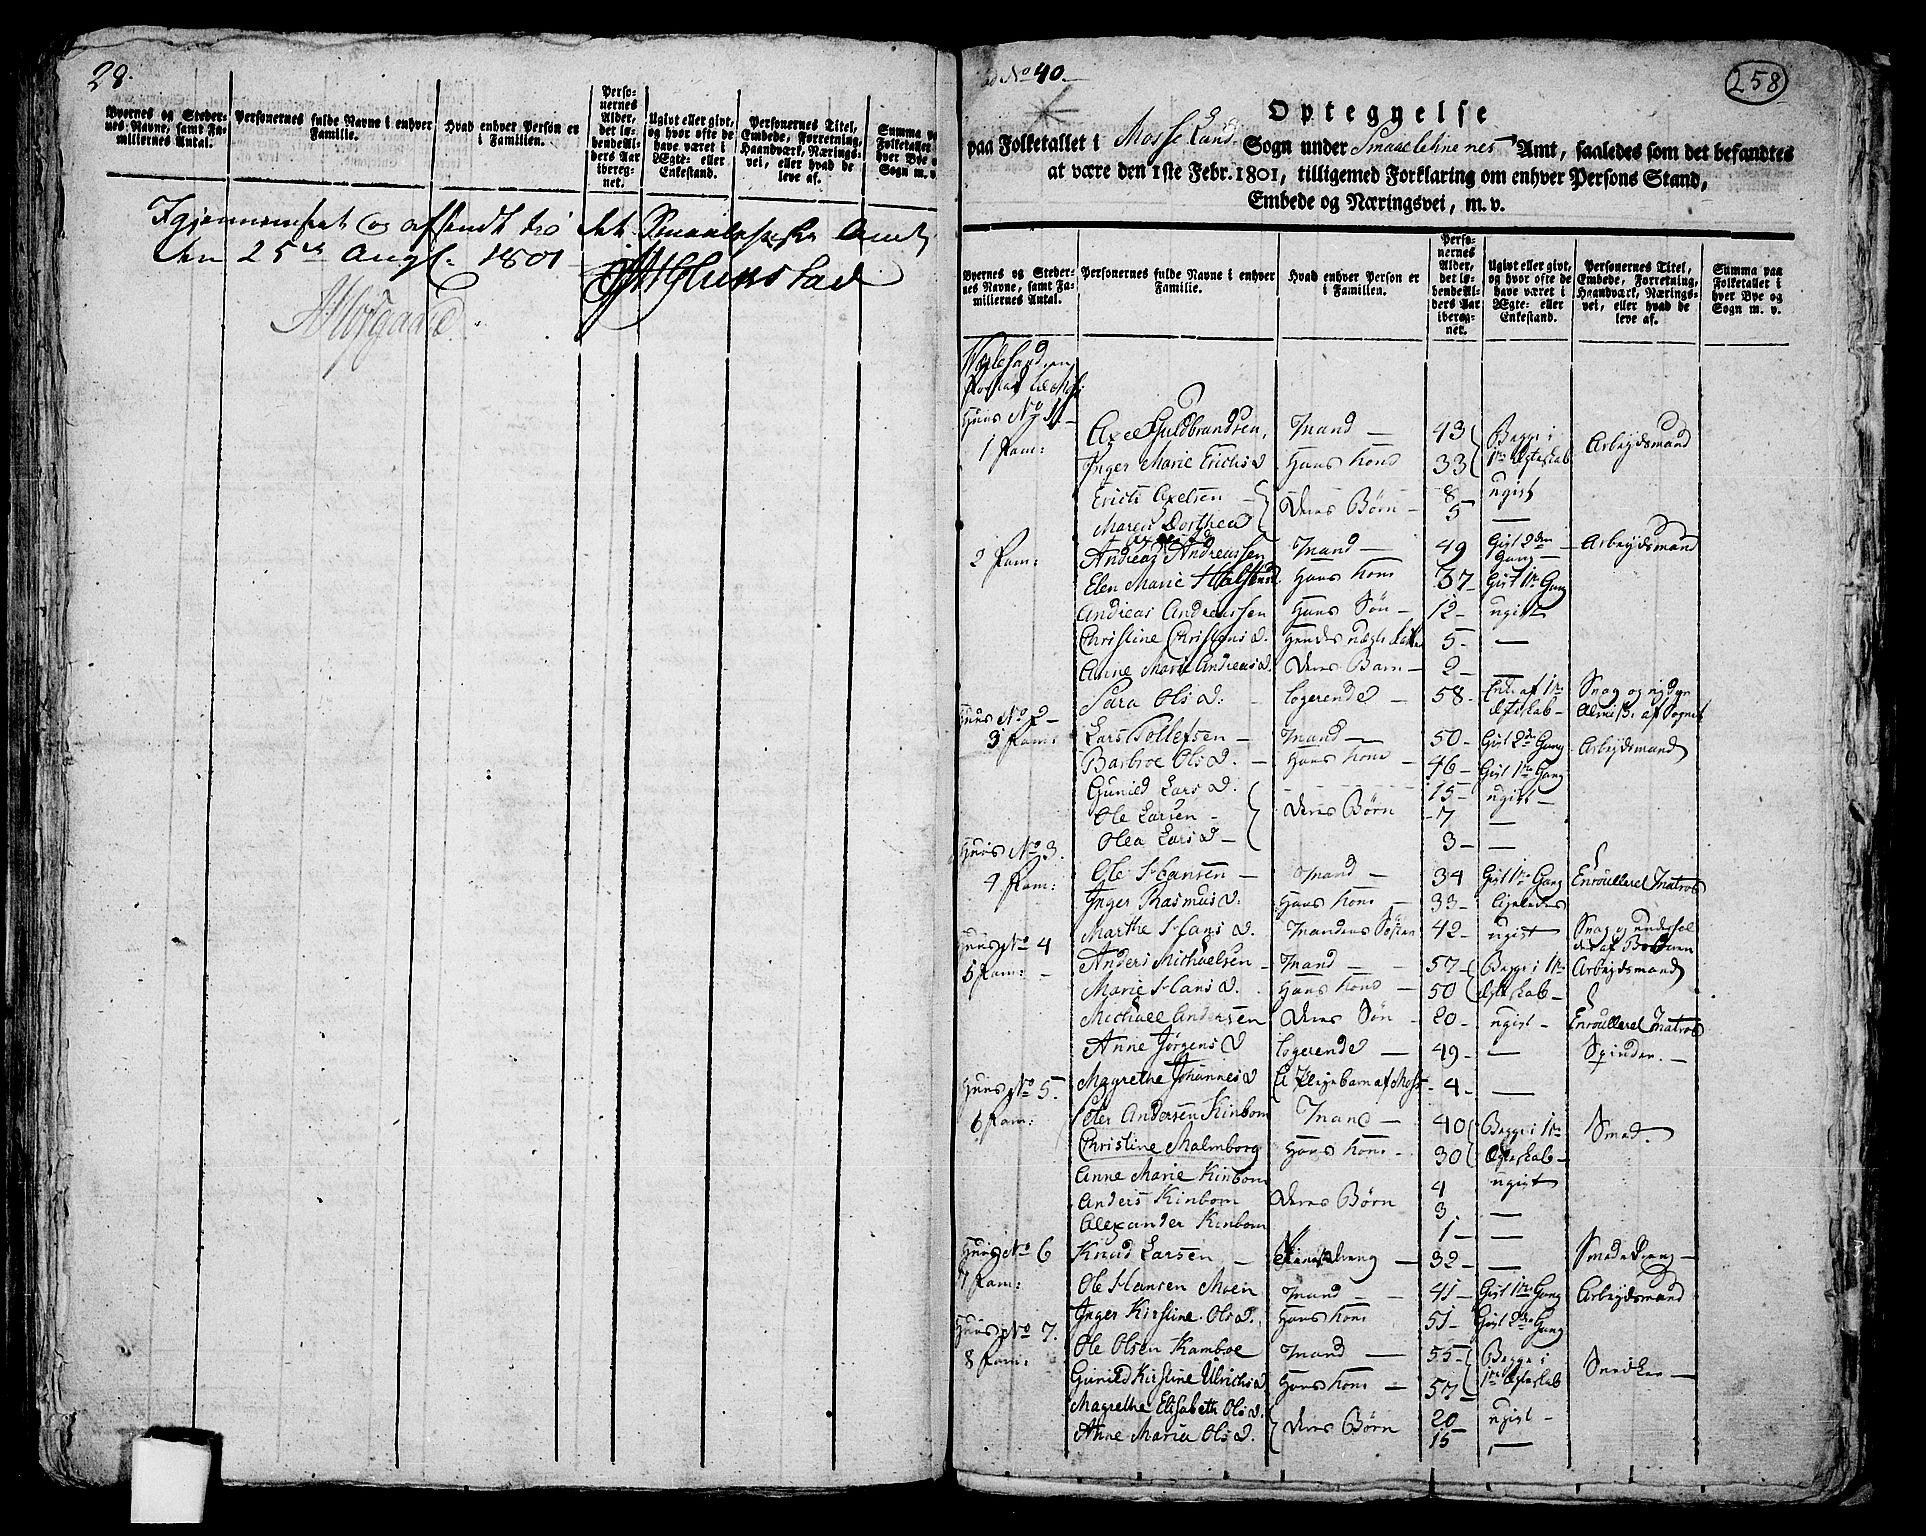 28.
Byernes og Steder-
nes Navne, samt Fa-
miliernes Antal.
Personernes fulde Navne i enhver
Familie.
Hvad enhver Person er
i Familien.
Perso-
nernes
Alder,
det lø-
bende Al-
ders Aar
iberegnet.
Ugivt eller givt,
og hvor ofte de
have været i
Ægte- eller
Enkestand.
Personernes Titel,
Embede, Forretning,
Haandværk, Nærings-
vei, eller hvad de
leve af.
Summa paa
Folketallet i
hver Bye og
Sogn m. v.
Igjennemseet og afsendt fra det Smaalehnske Amt
den 25de Aug. 1801
No 40.
258
Optegnelse
paa Folketallet i Mosse Land Sogn under Smaalehnenes Amt, saaledes som det befandtes
at være den 1ste Febr. 1801, tilligemed Forklaring om enhver Persons Stand,
Embede og Næringsvei, m. v.
Byernes og Steder-
nes Navne, samt Fa-
miliernes Antal.
Personernes fulde Navne i enhver
Familie.
Hvad enhver Person er
i Familien.
Perso-
nernes
Alder,
det lø-
bende Al-
ders Aar
iberegnet.
Ugivt eller givt,
og hvor ofte de
have været i
Ægte- eller
Enkestand.
Personernes Titel,
Embede, Forretning,
Haandværk, Nærings-
vei, eller hvad de
leve af.
Summa paa
Folketallet i
hver Bye og
Sogn m. v.
Huus No 1
1 Fam: Axel Guldbrandsen, Mand 43 Begge i Arbejdsmand
Inger Marie Erichs D. Hans Kone 33 1te Ægteskab
Erich Axelsen Deres Børn 8 ugift
Maren Dorthea Axels D. 5 —
2 Fam: Andreas Andreassen Mand 49 Gift 2den Gang Arbejdsmand
Elen Marie Hans Kone 37 Gift 1te Gang
Andreas Andreassen Hans Søn 12 ugift
Christine Christens D. Hendes uægte Datter 5 —
Anne Marie Andreas D. Deres Barn 2 —
Sara Ols D. Logerende 58 Enke af 1te Ægteskab Svag og nyder Almisse af Sognet
Huus No 2
3 Fam: Lars Tollefsen Mand 50 Gift 2de Gang Arbejdsmand
Barbroe Ols D. Hans Kone 46 Gift 1te Gang
Gunild Lars D. 15 ugift
Ole Larsen Deres Børn 7 —
Olea Lars D. 3 —
Huus No 3.
4 Fam: Ole Hansen Mand 34 Gift 1te Gang Enroulleret Matros
Inger Rasmus D. Hans Kone 33 ligeledes
Marthe Hans D. Mandens Søster 42 ugift Svag og af Broderen
Huus No 4
5 Fam: Anders Michaelsen Mand 57 Begge i 1te Arbejdsmand
Marie Hans D. Hans Kone 50 Ægteskab
Michael Andersen Deres Søn 20 ugift Enroulleret Matros
Anne Jørgens D Logerende 49 — Spinder.
Magrethe Johannes D Et Plejebarn af Moss 4 —
Huus No 5.
6 Fam: Peter Andersen Kinbom Mand 40 Begge i 1te Smed.
Christine Malmborg Hans Kone 30 Ægteskab
Anne Marie Kinbom 4 ugift
Anders Kinbom Deres Børn 3. —
Alexander Kinbom 1 —
Knud Larsen 32 — Smededreng
Huus No 6
7 Fam: Ole Hansen Moen Mand 41 Gift 1te Gang Arbejdsmand
Inger Kirstine Ols D. Hans Kone 51 Gift 2den Gang
Huus No 7.
8 Fam: Ole Olsen Kamboe Mand 55 Begge i Snedker
Gunild Kirstine Ulrichs D Hans Kone 57 1te Ægteskab
Magrethe Elisabeth Ols D. Deres Børn 20 ugift
Anne Maria Ols D. 15 —